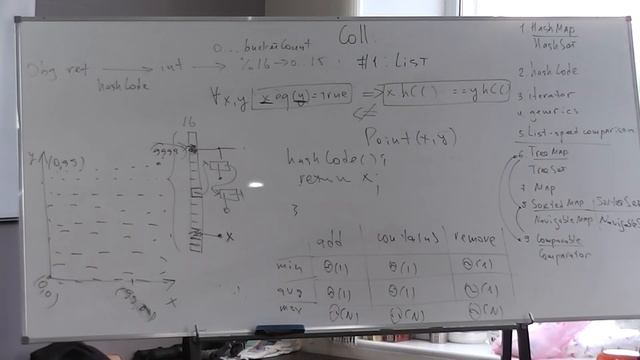 Coll
0...bucketCount
Obj ref → int → % 16 → 0..15. #1: List
hashCode
∀x,y x eq(y)=true => x hC() == y hC()
Point(x,y)
hashCode();
return x;
}
16
9999
y (0,99)
x
(0,0)
x
add contains remove
min Θ(1) Θ(1) Θ(1)
avg Θ(1) Θ(1) Θ(1)
max Θ(N) Θ(N) Θ(N)
1. HashMap
HashSet
2. hashCode
3 iterator
4 generics
5 List-speed comparison
6 TreeMap
TreeSet
7 Map
8 SortedMap, SortedSet
NavigableMap Navigable
9 Comparable
Comparator